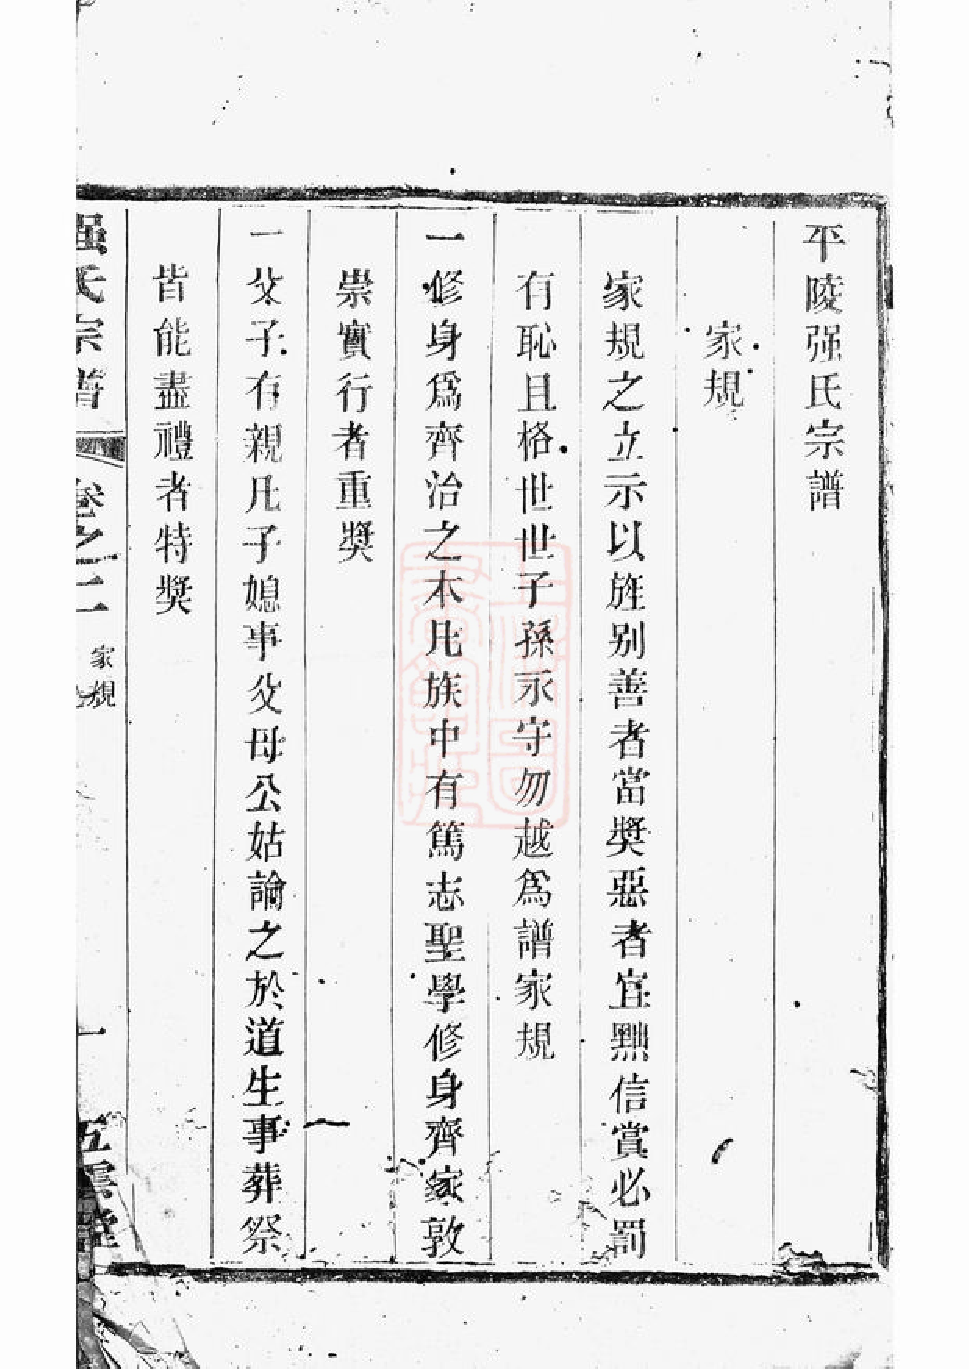 平陵强氏宗譜
家規
家規之立示以旌别善者當奬惡者宜黜信賞必罰
有恥且格世世子孫永守勿越爲譜家規
一修身爲齊治之本凡族中有篤志聖學修身齊家敦
崇實行者重奬
一父子有親凡子媳事父母公姑諭之於道生事葬祭
皆能盡禮者特奬
强氏宗譜
卷之二
家規
一
五雲堂